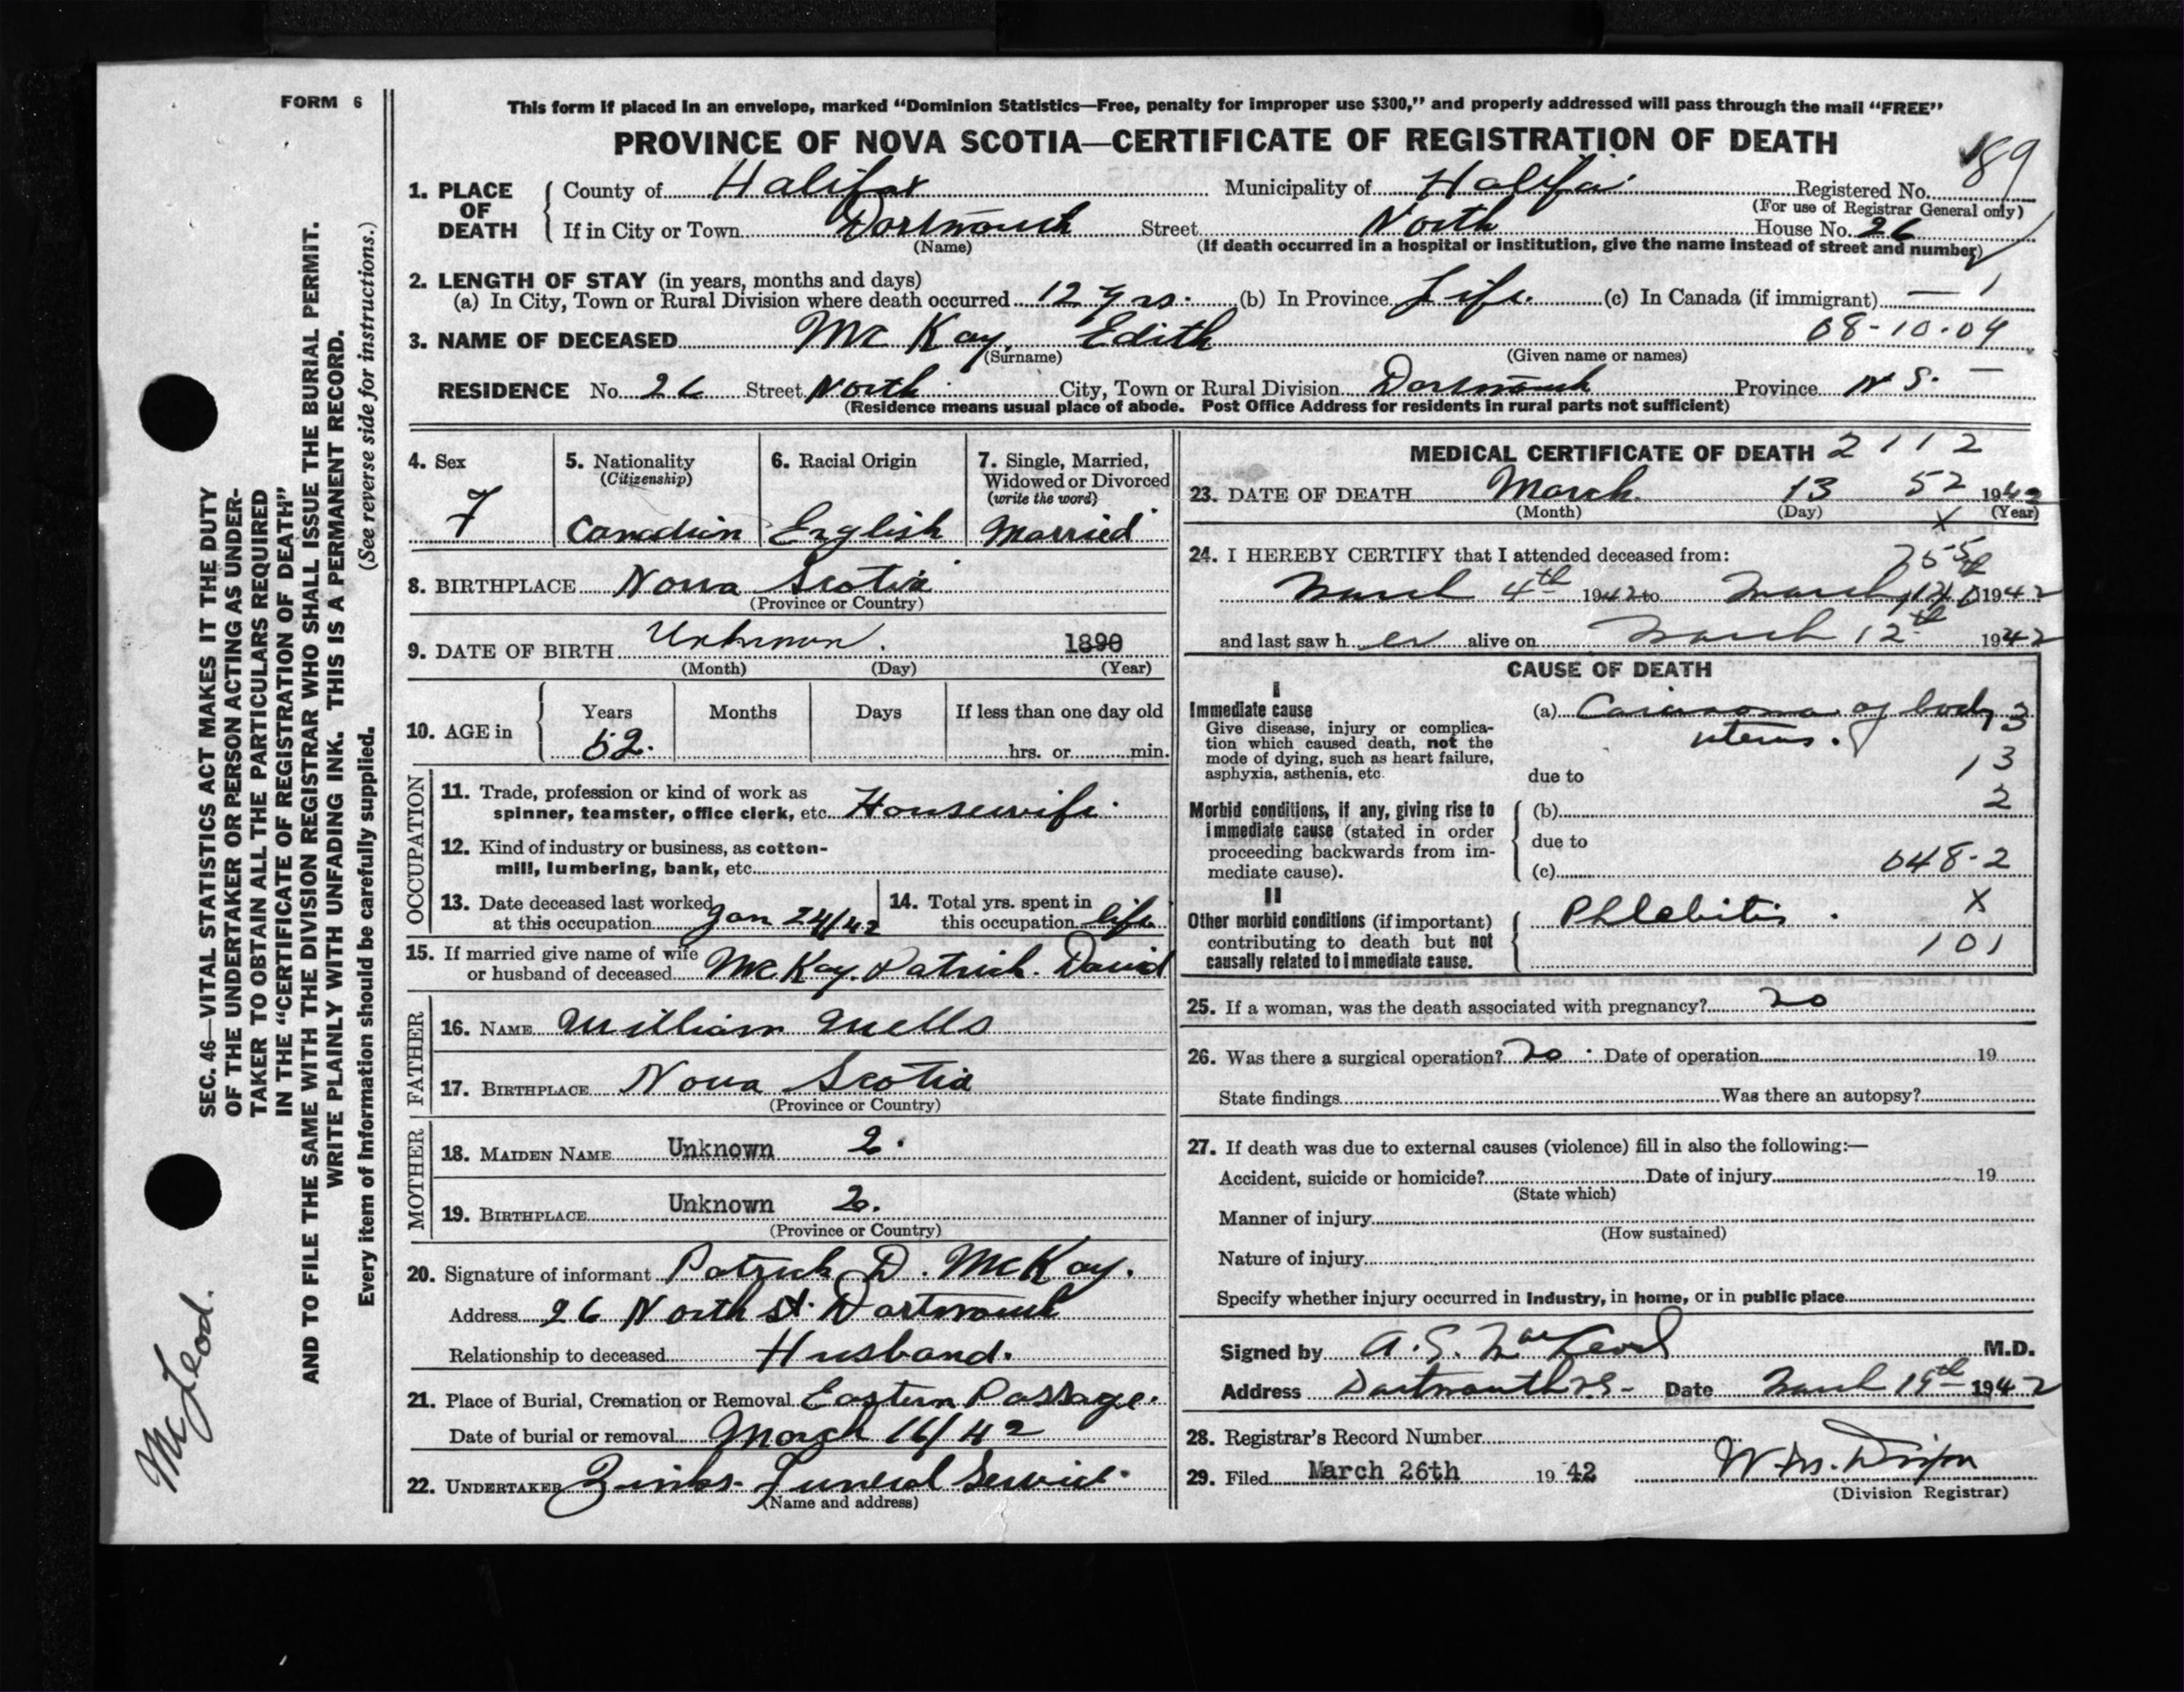 FORM 6
This form if placed in an envelope, marked “Dominion Statistics—Free, penalty for improper use $300,” and properly addressed will pass through the mail “FREE”
PROVINCE OF NOVA SCOTIA—CERTIFICATE OF REGISTRATION OF DEATH
189
1. PLACE OF DEATH
County of Halifax Municipality of Halifax Registered No.
(For use of Registrar General only)
If in City or Town Dartmouth Street North House No. 26
(Name) (If death occurred in a hospital or institution, give the name instead of street and number)
2. LENGTH OF STAY (in years, months and days)
(a) In City, Town or Rural Division where death occurred 12 yrs. (b) In Province Life. (c) In Canada (if immigrant) — 1
08-10-04
3. NAME OF DECEASED McKay, Edith
(Surname) (Given name or names)
RESIDENCE No. 26 Street North City, Town or Rural Division Dartmouth Province N S. —
(Residence means usual place of abode. Post Office Address for residents in rural parts not sufficient)
4. Sex
F
5. Nationality
(Citizenship)
Canadian
6. Racial Origin
English
7. Single, Married,
Widowed or Divorced
(write the word)
Married
8. BIRTHPLACE Nova Scotia
(Province or Country)
9. DATE OF BIRTH Unknown. 1890
(Month) (Day) (Year)
10. AGE in
Years Months Days If less than one day old
52. hrs. or min.
OCCUPATION
11. Trade, profession or kind of work as
spinner, teamster, office clerk, etc. Housewife.
12. Kind of industry or business, as cotton-
mill, lumbering, bank, etc.
13. Date deceased last worked
at this occupation Jan 24/42
14. Total yrs. spent in
this occupation life
15. If married give name of wife
or husband of deceased McKay. Patrick. David
FATHER
16. NAME William
17. BIRTHPLACE Nova Scotia
(Province or Country)
MOTHER
18. MAIDEN NAME Unknown 2.
19. BIRTHPLACE Unknown
(Province or Country)
20. Signature of informant Patrick D. McKay.
Address 26 North st. Dartmouth
Relationship to deceased Husband.
21. Place of Burial, Cremation or Removal Eastern Passage.
Date of burial or removal March 16/42
22. UNDERTAKER Zinks. Funeral Service.
(Name and address)
MEDICAL CERTIFICATE OF DEATH 2 1 1 2
23. DATE OF DEATH March 13 52 1942
(Month) (Day) (Year)
X
24. I HEREBY CERTIFY that I attended deceased from:
March 4th 1942 to March 1942
and last saw her alive on March 12th 1942
CAUSE OF DEATH
I
Immediate cause
Give disease, injury or complica-
tion which caused death, not the
mode of dying, such as heart failure,
asphyxia, asthenia, etc.
(a) Carcinoma of body 3
uterus.
13
due to
Morbid conditions, if any, giving rise to
immediate cause (stated in order
proceeding backwards from im-
mediate cause).
2
(b)
due to
(c) 048-2
II
Other morbid conditions (if important)
contributing to death but not
causally related to immediate cause.
Phlebitis. X
101
25. If a woman, was the death associated with pregnancy? no
26. Was there a surgical operation? no. Date of operation 19
State findings Was there an autopsy?
27. If death was due to external causes (violence) fill in also the following:—
Accident, suicide or homicide? Date of injury 19
(State which)
Manner of injury
(How sustained)
Nature of injury
Specify whether injury occurred in industry, in home, or in public place
Signed by A. S. MacLeod M.D.
Address Dartmouth NS. Date March 19th 1942
28. Registrar's Record Number
29. Filed March 26th 1942
(Division Registrar)
SEC. 46—VITAL STATISTICS ACT MAKES IT THE DUTY
OF THE UNDERTAKER OR PERSON ACTING AS UNDER-
TAKER TO OBTAIN ALL THE PARTICULARS REQUIRED
IN THE “CERTIFICATE OF REGISTRATION OF DEATH”
AND TO FILE THE SAME WITH THE DIVISION REGISTRAR WHO SHALL ISSUE THE BURIAL PERMIT.
WRITE PLAINLY WITH UNFADING INK. THIS IS A PERMANENT RECORD.
Every item of information should be carefully supplied. (See reverse side for instructions.)
McLeod.